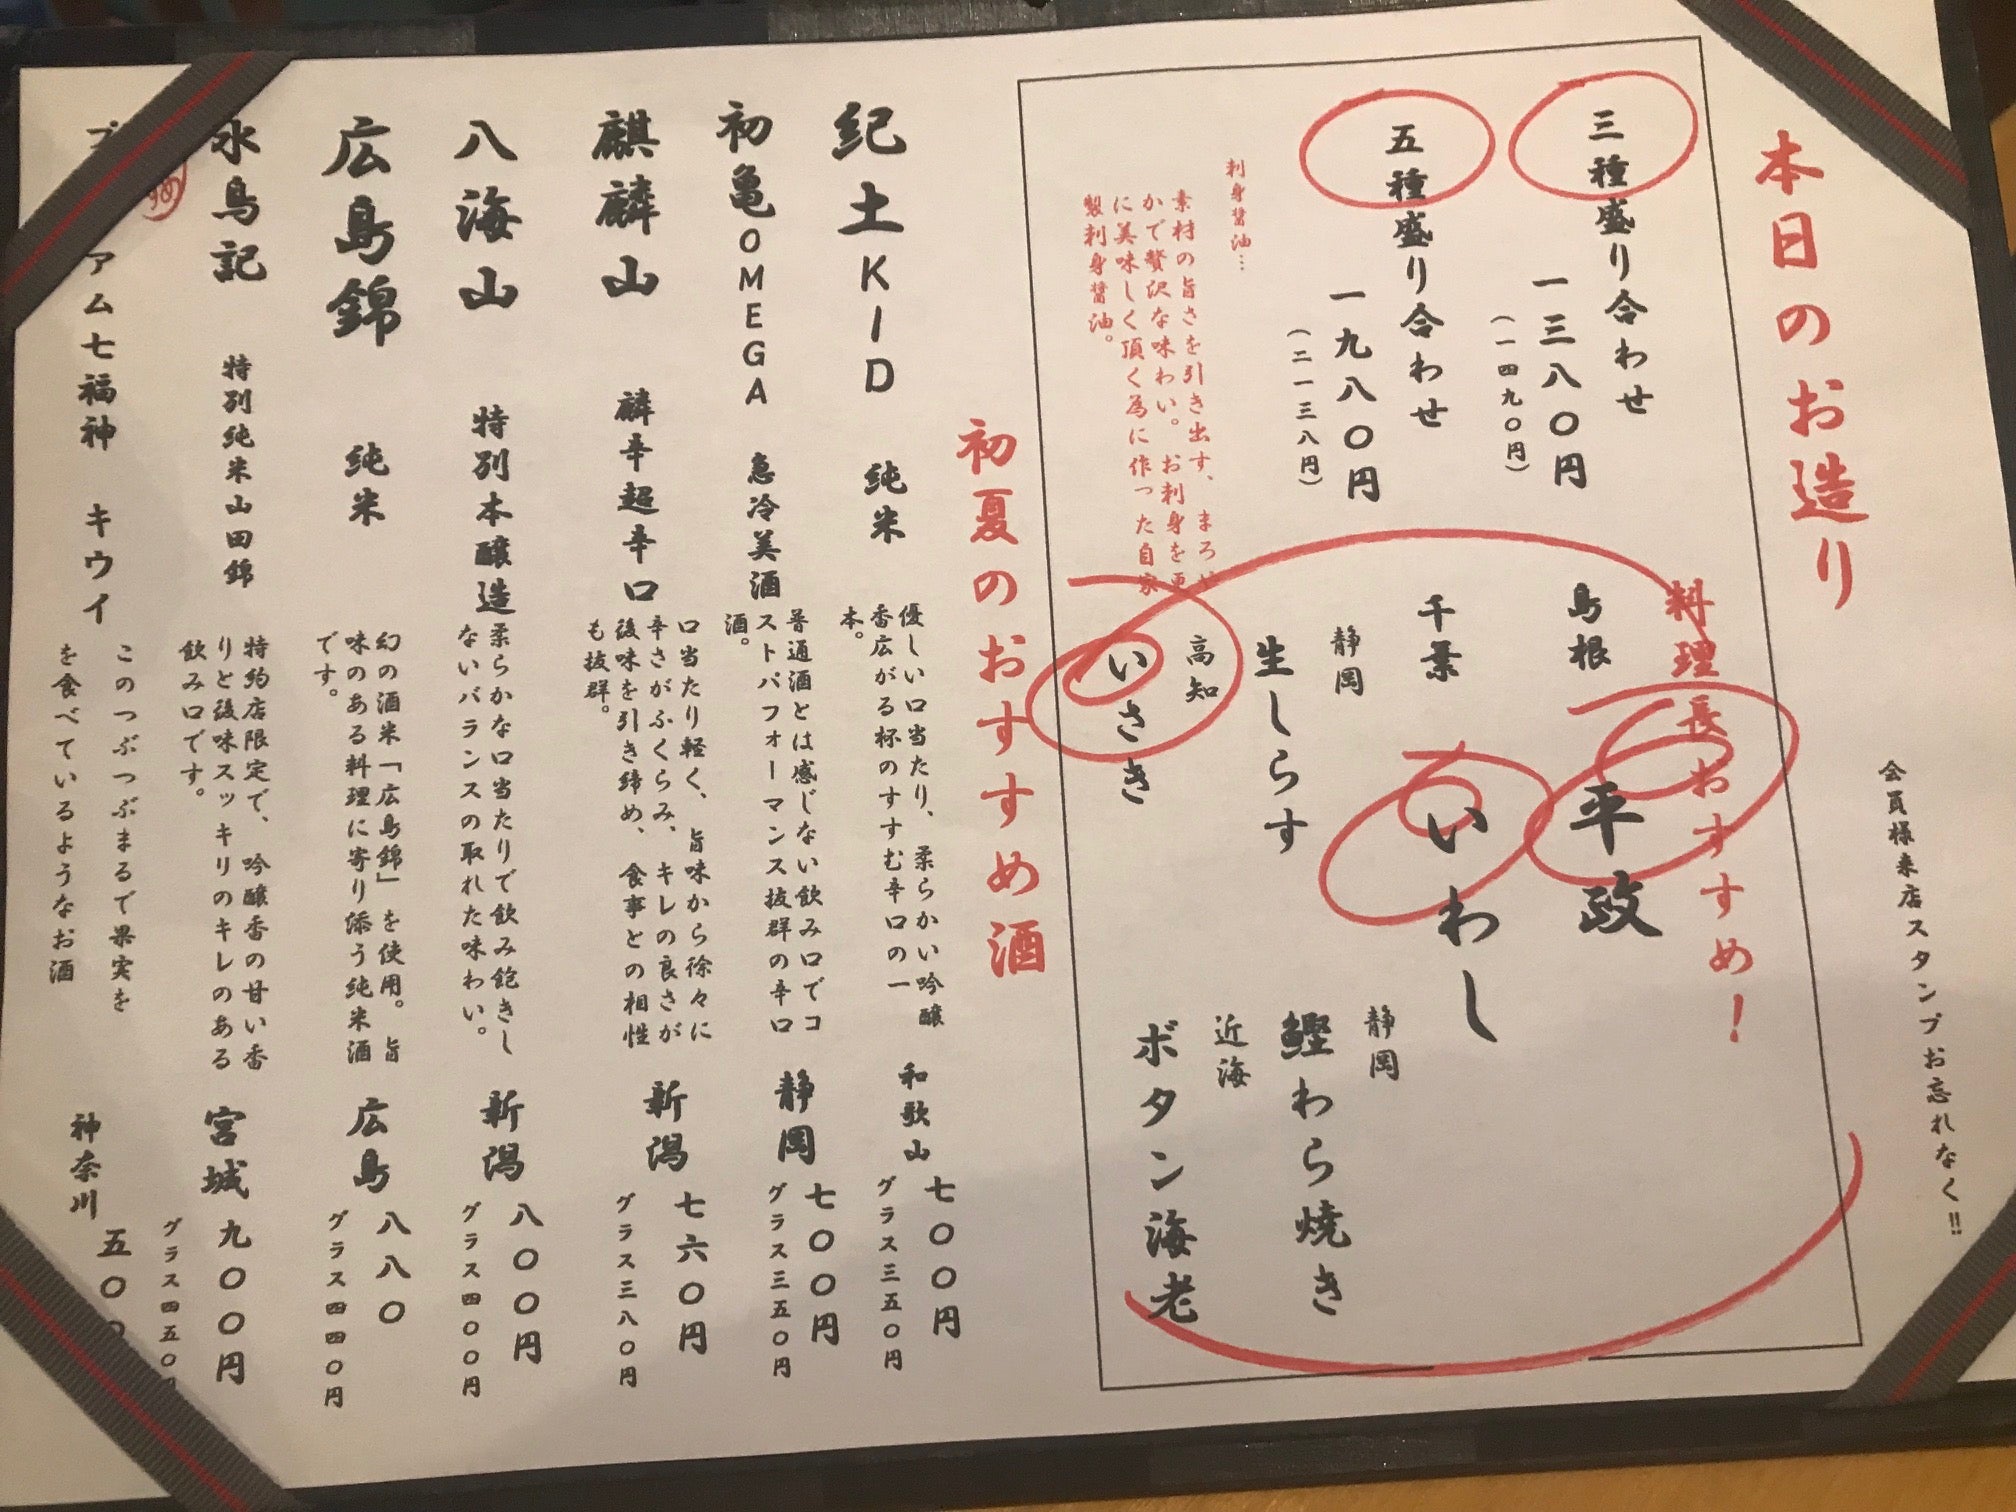 会員様来店スタンプお忘れなく!!
本日のお造り
三種盛り合わせ
一三八〇円
(一四九〇円)
五種盛り合わせ
一九八〇円
(二一三八円)
刺身醤油…
素材の旨さを引き出す、まろや
かで贅沢な味わい。お刺身を更
に美味しく頂く為に作った自家
製刺身醤油。
料理長おすすめ!
島根
平政
千葉
いわし
静岡
生しらす
高知
いさき
静岡
鰹わら焼き
近海
ボタン海老
初夏のおすすめ酒
紀土KID 純米
優しい口当たり、柔らかい吟醸
香広がる杯のすすむ辛口の一
本。
和歌山
七〇〇円
グラス三五〇円
初亀OMEGA 急冷美酒
普通酒とは感じない飲み口でコ
ストパフォーマンス抜群の辛口
酒。
静岡
七〇〇円
グラス三五〇円
麒麟山 麟辛超辛口
口当たり軽く、旨味から徐々に
辛さがふくらみ、キレの良さが
後味を引き締め、食事との相性
も抜群。
新潟
七六〇円
グラス三八〇円
八海山 特別本醸造
柔らかな口当たりで飲み飽きし
ないバランスの取れた味わい。
新潟
八〇〇円
グラス四〇〇円
広島錦 純米
幻の酒米「広島錦」を使用。旨
味のある料理に寄り添う純米酒
です。
広島
八八〇
グラス四四〇円
水鳥記 特別純米山田錦
特約店限定で、吟醸香の甘い香
りと後味スッキリのキレのある
飲み口です。
宮城
九〇〇円
グラス四五〇円
アム七福神 キウイ
このつぶつぶまるで果実を
を食べているようなお酒
神奈川
五〇